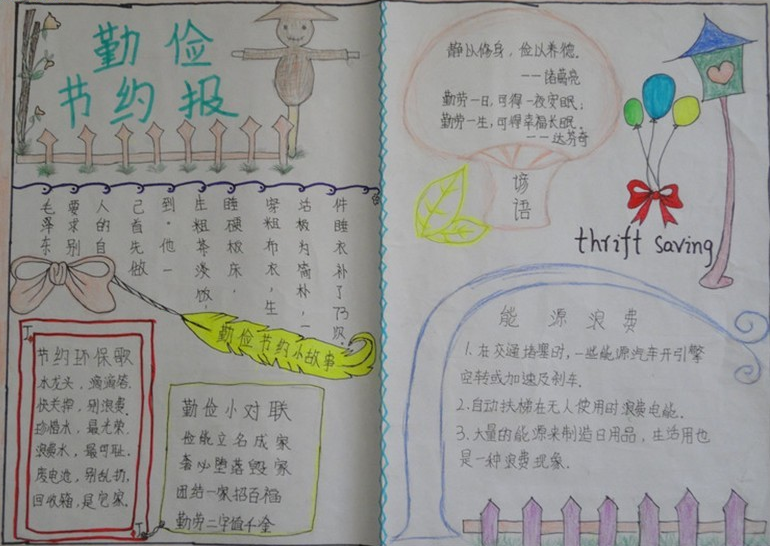 勤俭
节约报
毛泽东
要求别
人的自
己首先做
到。他一
生粗茶淡饭,
睡硬板床,
穿粗布衣,生
活极为简朴,一
件睡衣补了73次.
勤俭节约小故事
节约环保歌
水龙头,滴滴答.
快关掉,别浪费.
珍惜水,最光荣.
浪费水,最可耻.
废电池,别乱扔,
回收箱,是它家.
勤俭小对联
俭能立名成家
奢必堕落毁家
团结一家招百福
勤劳二字值千金
静以修身,俭以养德.
——诸葛亮
勤劳一日,可得一夜安眠;
勤劳一生,可得幸福长眠.
——达芬奇
谚语
thrift saving
能源浪费
1.在交通堵塞时,一些能源汽车开引擎
空转或加速及刹车.
2.自动扶梯在无人使用时浪费电能.
3.大量的能源来制造日用品,生活用也
是一种浪费现象.